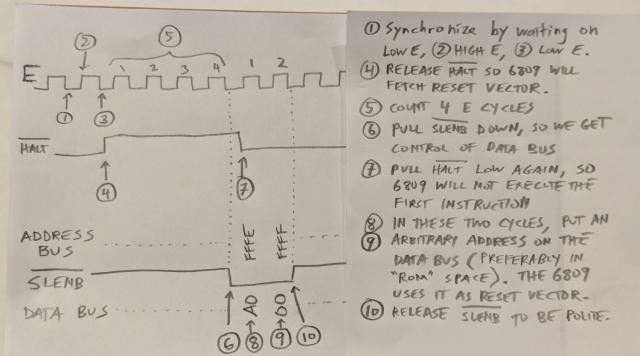 ⑤
②
1 2 3 4 1 2
E
① ③
HALT
④ ⑦
ADDRESS BUS
FFFE FFFF
SLENB
DATA BUS
A0 00
⑥ ⑧ ⑨ ⑩
① Synchronize by waiting on
LOW E, ② HIGH E, ③ LOW E.
④ RELEASE HALT SO 6809 WILL
FETCH RESET VECTOR.
⑤ COUNT 4 E CYCLES
⑥ PULL SLENB DOWN, SO WE GET
CONTROL OF DATA BUS
⑦ PULL HALT LOW AGAIN, SO
6809 WILL NOT EXECUTE THE
FIRST INSTRUCTION
⑧ IN THESE TWO CYCLES, PUT AN
⑨ ARBITRARY ADDRESS ON THE
DATA BUS (PREFERABLY IN
"ROM" SPACE). THE 6809
USES IT AS RESET VECTOR.
⑩ RELEASE SLENB TO BE POLITE.